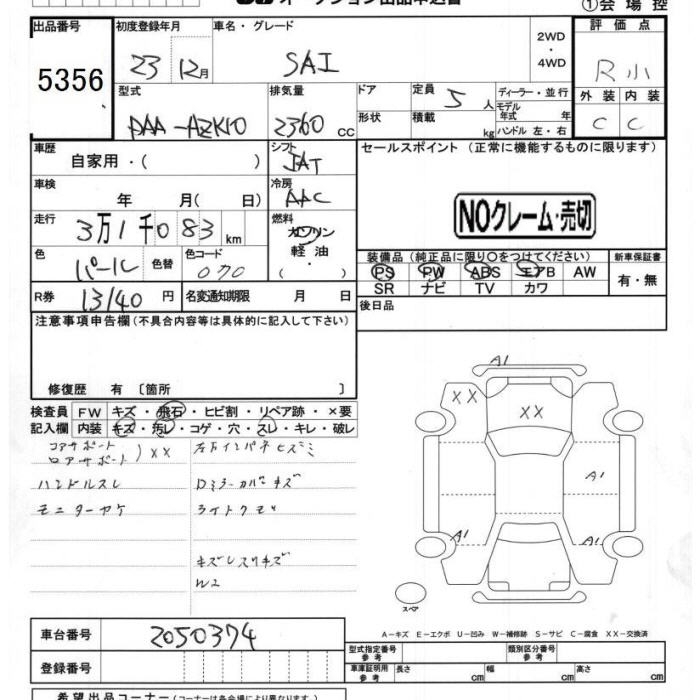 オークション出品申込書
①会場控
出品番号 初度登録年月 車名・グレード 評価点
5356 23 12月 SAI 2WD・4WD R小
型式 排気量 ドア 定員 5人 ディーラー・並行 外装 内装
DAA-AZK10 2360CC 形状 積載 kg モデル年式 年 ハンドル 左・右 C C
車歴 シフト セールスポイント(正常に機能するものに限ります)
自家用・( ) IAT
車検 冷房
年 月( 日) AAC
NOクレーム・売切
走行 燃料
3万1千083km ガソリン
軽油
・( )
色 色替 色コード
パール 070
装備品(純正品に限り○をつけてください) 新車保証書
PS PW ABS エアB AW 有・無
SR ナビ TV カワ
R券 13140円 名変通知期限 月 日 後日品
注意事項申告欄(不具合内容等は具体的に記入して下さい)
修復歴 有〔箇所 〕
検査員 FW キズ・飛石・ヒビ割・リペア跡・×要
記入欄 内装 キズ・汚レ・コゲ・穴・スレ・キレ・破レ
コアサポート
ロアサポート )XX
ハンドルスレ
モニターヤケ
Dミラーカバーキズ
ライトクモリ
キズレスリキズ
W2
A1
XX
XX
A1
A1
A1
スペア
A－キズ E－エクボ U－凹み W－補修跡 S－サビ C－腐食 XX－交換済
車台番号 2050374
登録番号
型式指定番号 参考 類別区分番号 参考
車庫証明用 参考 長さ cm 幅 cm 高さ cm
希望出品コーナー(コーナーは各会場により異なります)